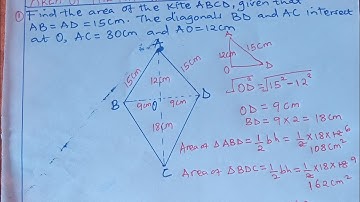 AREA OF THE
① Find the area of the Kite ABCD, given that
AB = AD = 15cm. The diagonals BD and AC intersect
at O, AC = 30cm and AO = 12cm
A
15cm
15cm
12cm
B
9cm
O
9cm
D
18cm
C
A
12cm
15cm
O
D
√OD² = √15² - 12²
OD = 9cm
BD = 9 x 2 = 18cm
Area of ΔABD = 1/2 bh = 1/2 x 18 x 12 6
108cm²
Area of ΔBDC = 1/2 bh = 1/2 x 18 x 18 9
162cm²